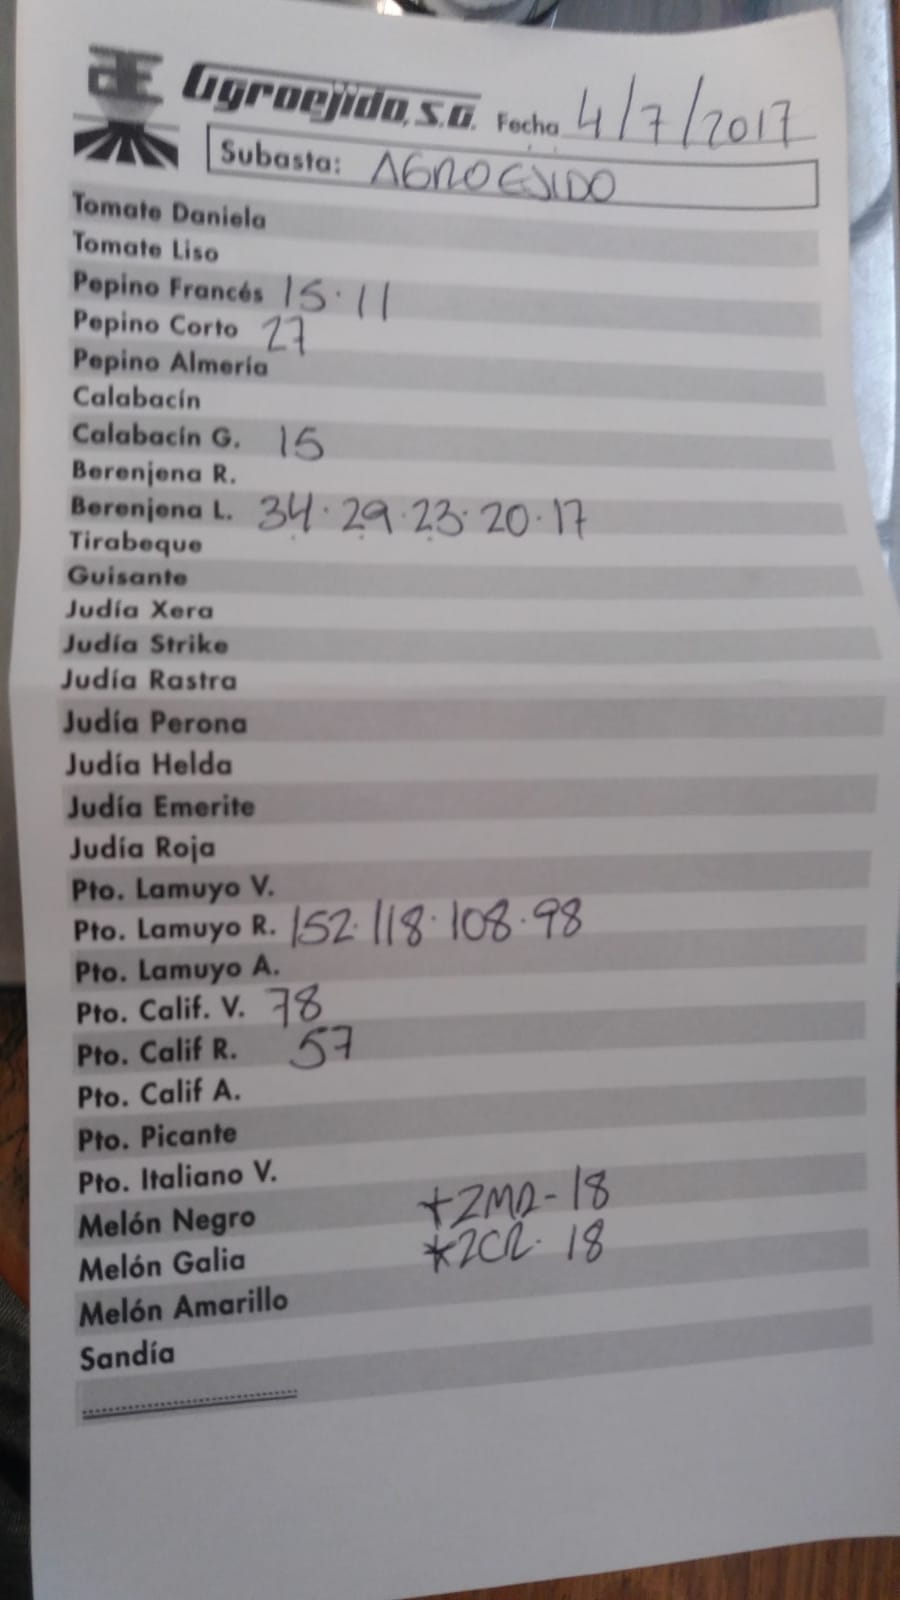 Agroejido, S.A. Fecha 4/7/2017
Subasta: AGROEJIDO
Tomate Daniela
Tomate Liso
Pepino Francés 15·11
Pepino Corto 27
Pepino Almería
Calabacín
Calabacín G. 15
Berenjena R.
Berenjena L. 34·29·23·20·17
Tirabeque
Guisante
Judía Xera
Judía Strike
Judía Rastra
Judía Perona
Judía Helda
Judía Emerite
Judía Roja
Pto. Lamuyo V.
Pto. Lamuyo R. 152·118·108·98
Pto. Lamuyo A.
Pto. Calif. V. 78
Pto. Calif R. 57
Pto. Calif A.
Pto. Picante
Pto. Italiano V.
Melón Negro - 18
Melón Galia *2CR· 18
Melón Amarillo
Sandía